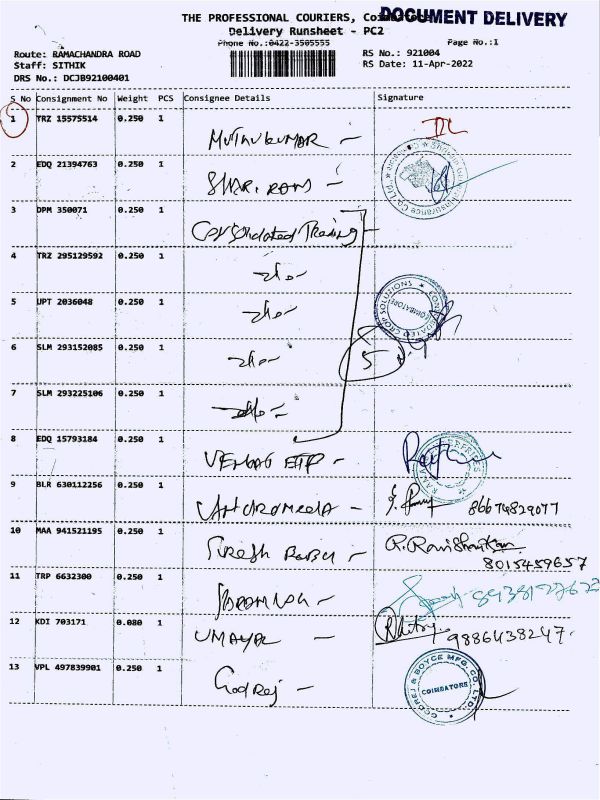 THE PROFESSIONAL COURIERS, Coimbatore
DOCUMENT DELIVERY
Delivery Runsheet - PC2
Phone No.:0422-3505555
Page No.:1
Route: RAMACHANDRA ROAD
RS No.: 921004
Staff: SITHIK
RS Date: 11-Apr-2022
DRS No.: DCJB92100401
S No Consignment No Weight PCS Consignee Details Signature
1 TRZ 15575514 0.250 1
MUTHUKUMAR -
2 EDQ 21394763 0.250 1
3 DPM 350071 0.250 1
Consolidated Trading
4 TRZ 295129592 0.250 1
5 UPT 2036048 0.250 1
CONSOLIDATED CROP SOLUTIONS
COIMBATORE
6 SLM 293152085 0.250 1
5
7 SLM 293225106 0.250 1
8 EDQ 15793184 0.250 1
9 BLR 630112256 0.250 1
ANDROMEDA - 86674829077
10 MAA 941521195 0.250 1
Suresh Babu - R. Ravishankar
8015459657
11 TRP 6632300 0.250 1
12 KDI 703171 0.080 1
UMAYAL - 9886438247.
13 VPL 497839901 0.250 1
Godrej -
GODREJ & BOYCE MFG. CO. LTD.
COIMBATORE